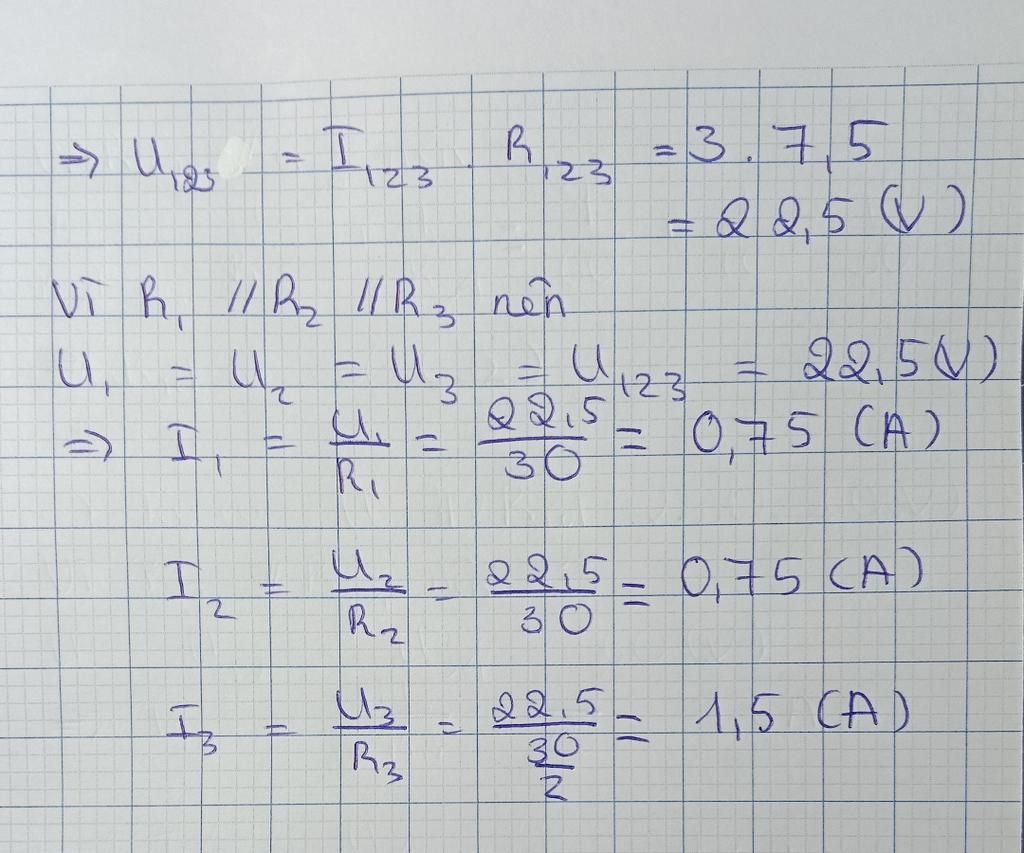 => U₁₂₃ = I₁₂₃ . R₁₂₃ = 3 . 7,5
= 22,5 (V)
Vì R₁ // R₂ // R₃ nên
U₁ = U₂ = U₃ = U₁₂₃ = 22,5 (V)
=> I₁ = U₁/R₁ = 22,5/30 = 0,75 (A)
I₂ = U₂/R₂ = 22,5/30 = 0,75 (A)
I₃ = U₃/R₃ = 22,5/(30/2) = 1,5 (A)